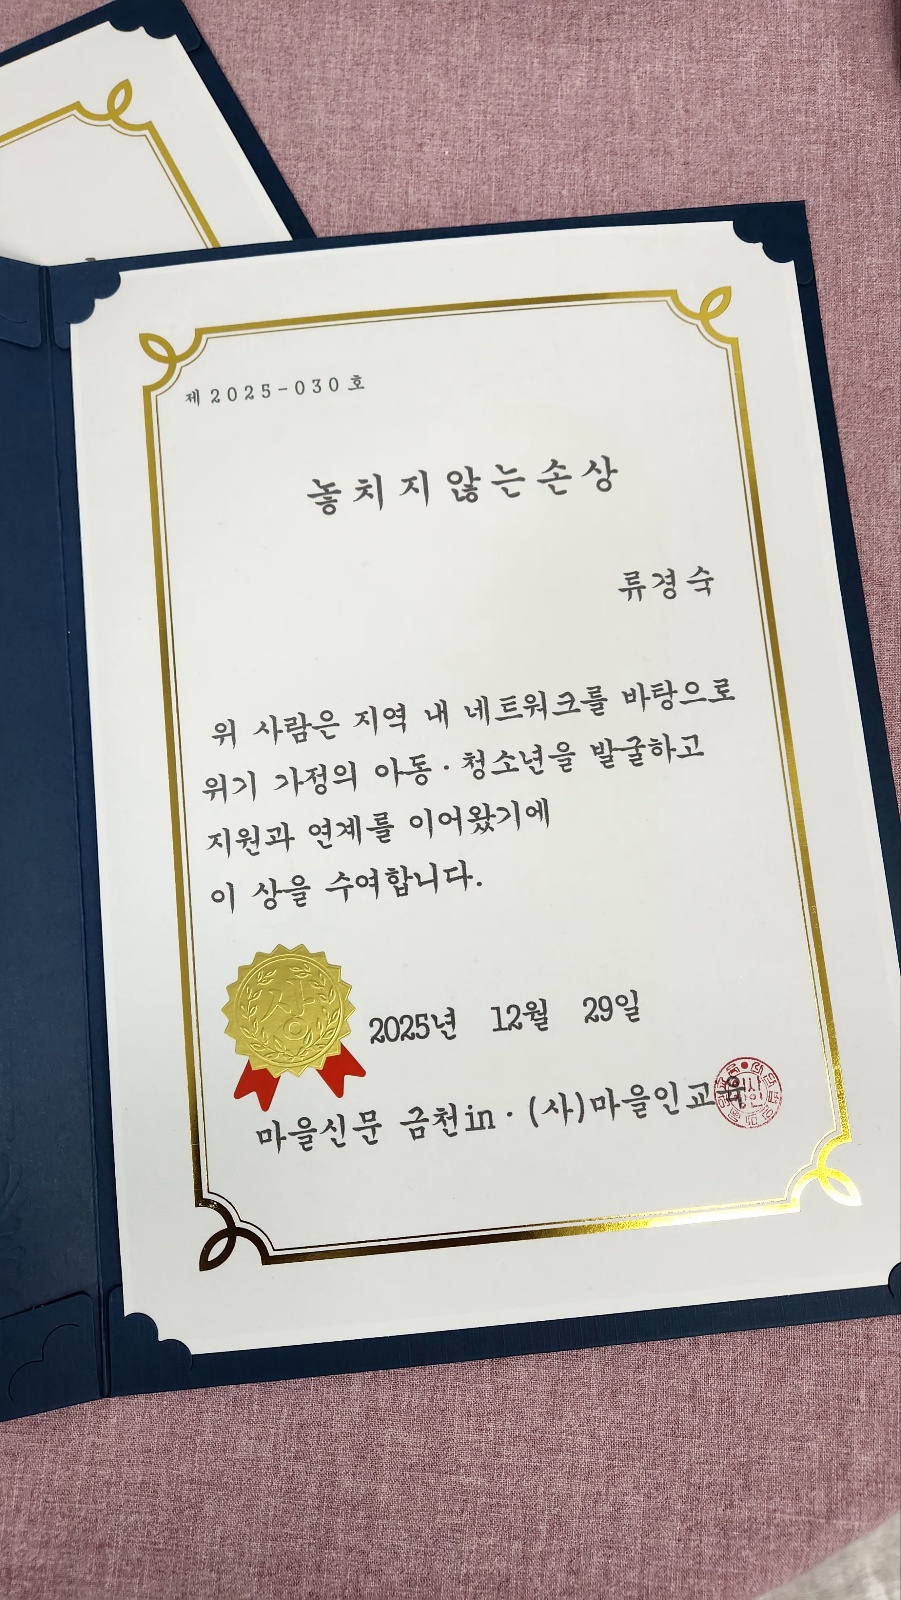 제 2025-030 호
놓치지않는손상
류경숙
위 사람은 지역 내 네트워크를 바탕으로
위기 가정의 아동·청소년을 발굴하고
지원과 연계를 이어왔기에
이 상을 수여합니다.
상
2025년 12월 29일
마을신문 금천in·(사)마을인교육